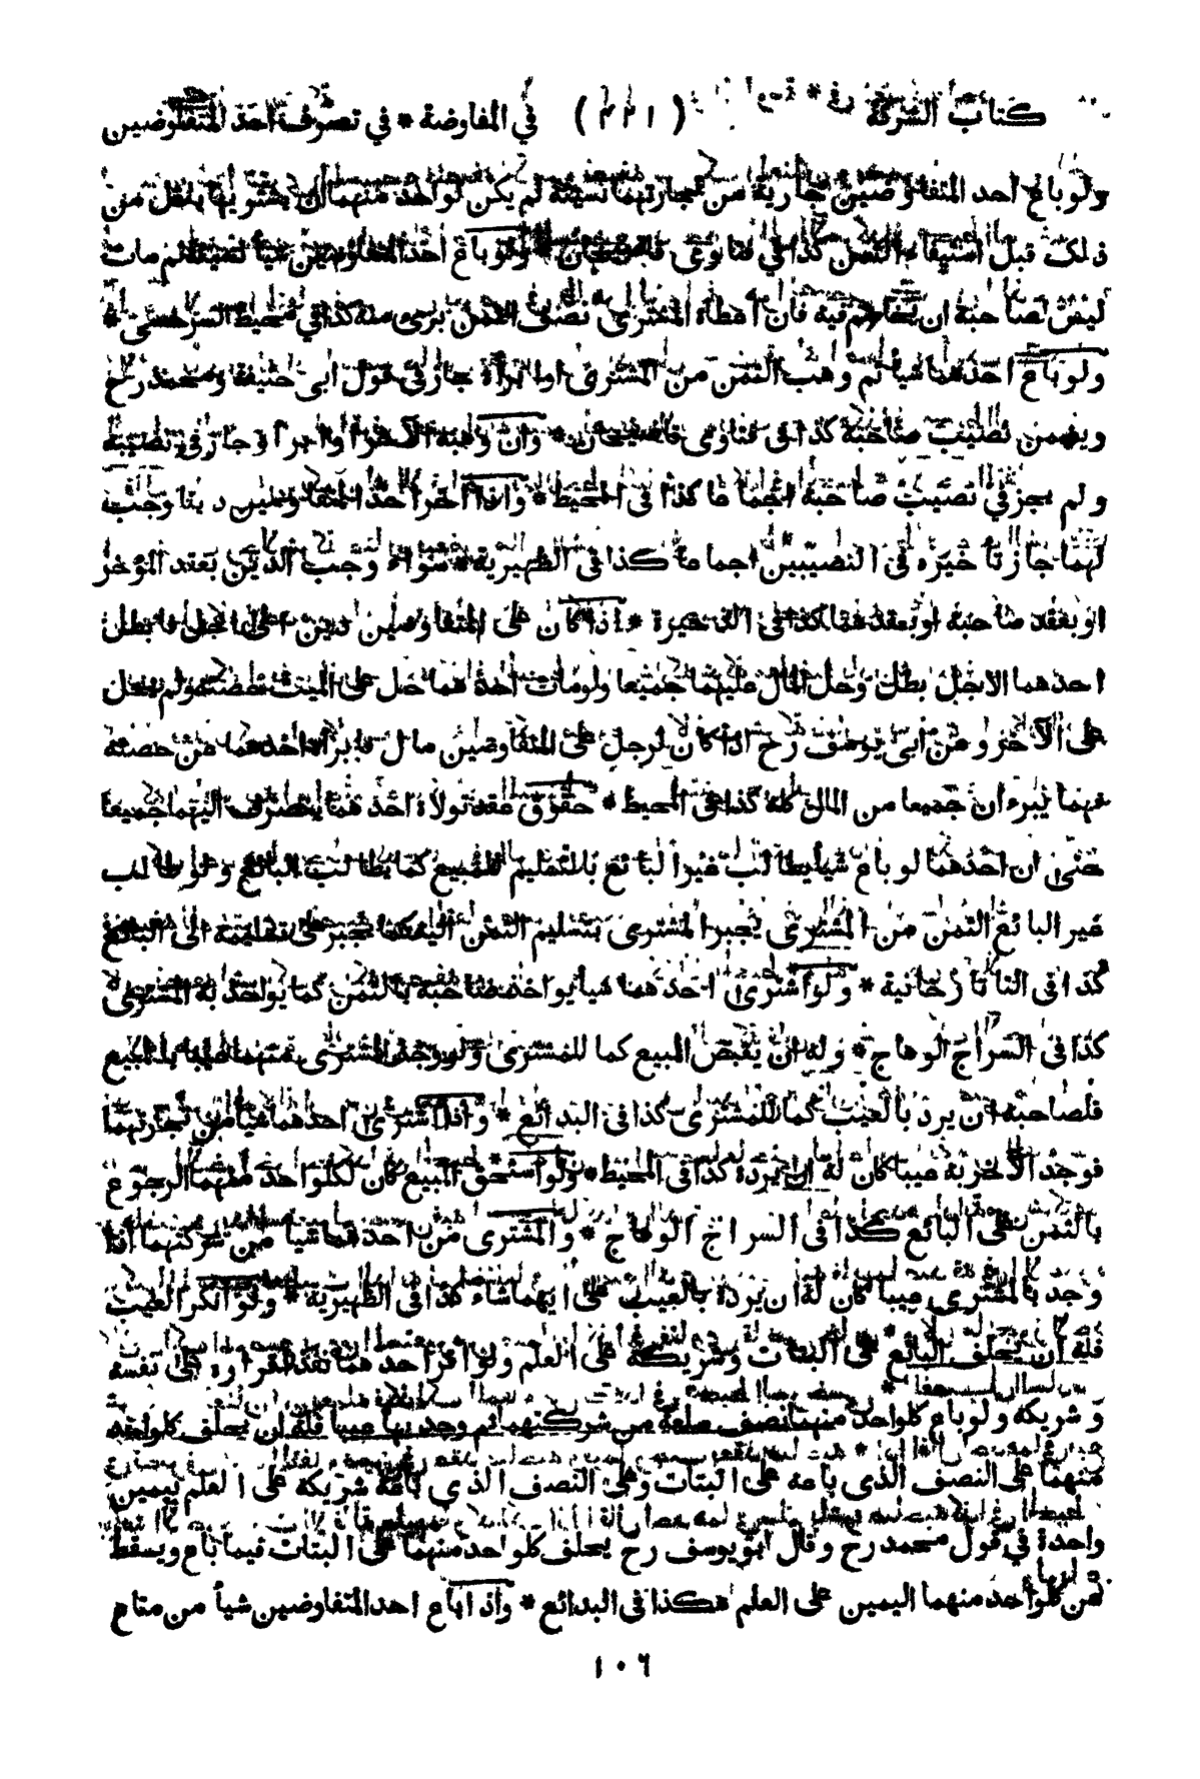 كتاب الشركة (٤٤١) في المفاوضة * في تصرف احد المتفاوضين
ولو باع احد المتفاوضين جارية من تجارتهما نسيئة لم يكن لواحد منهما ان يشتريها باقل من
ذلك قبل استيفاء الثمن كذا في فتاوى قاضيخان * ولو باع احد المتفاوضين شيأ نسيئة ثم مات
ليس لصاحبه ان يخاصم فيه فان اعطاه المشترى نصف الثمن برئ منه كذا في محيط السرخسى *
ولو باع احدهما شيأ ثم وهب الثمن من المشترى او ابرأه جاز فى قول ابى حنيفة ومحمد رح
ويضمن نصيب صاحبه كذا فى فتاوى قاضيخان * وان وهبه الآخر او ابرأه جاز فى نصيبه
ولم يجز في نصيب صاحبه اجماعا كذا فى المحيط * واذا اخر احد المتفاوضين دينا وجب
لهما جاز تأخيره فى النصيبين اجماعا كذا فى الظهيرية * سواء وجب الدين بعقد المؤخر
او بعقد صاحبه او بعقدهما كذا فى الذخيرة * اذا كان على المتفاوضين دين الى اجل فابطل
احدهما الاجل بطل وحل المال عليهما جميعا ولو مات احدهما حل على الميت حصته ولم يحل
على الآخر وعن ابى يوسف رح اذا كان لرجل على المتفاوضين مال فابرأ احدهما من حصته
فهما يبرءان جميعا من المال كله كذا فى المحيط * حقوق عقد تولاه احدهما ينصرف اليهما جميعا
حتى ان احدهما لو باع شيأ يطالب غير البائع بالتسليم للمبيع كما يطالب البائع ولو طالب
غير البائع الثمن من المشترى يجبر المشترى بتسليم الثمن اليه كما يجبر على تسليمه الى البائع
كذا فى التاتارخانية * ولو اشترى احدهما شيأ يواخذ صاحبه بالثمن كما يواخذ به المشترى
كذا فى السراج الوهاج * وله ان يقبض المبيع كما للمشترى ولو وجد المشترى منهما عيبا بالمبيع
فلصاحبه ان يرد بالعيب كما للمشترى كذا فى البدائع * واذا اشترى احدهما شيأ من تجارتهما
فوجد الآخر به عيبا كان له ان يرده كذا فى المحيط * ولو استحق المبيع كان لكلواحد منهما الرجوع
بالثمن على البائع كذا فى السراج الوهاج * والمشترى من احدهما شيأ من شركتهما اذا
وجد بالمشترى عيبا كان له ان يرده بالعيب على ايهما شاء كذا فى الظهيرية * ولو انكر العيب
فله ان يحلف البائع على البتات وشريكه على العلم ولو اقر احدهما نفذ اقراره على نفسه
وشريكه ولو باع كلواحد منهما نصف سلعة من شركتهما ثم وجد بها عيبا فله ان يحلف كلواحد
منهما على النصف الذى باعه على البتات وعلى النصف الذى باعه شريكه على العلم بيمين
واحدة في قول محمد رح وقال ابو يوسف رح يحلف كلواحد منهما على البتات فيما باع ويسقط
عن كلواحد منهما اليمين على العلم هكذا فى البدائع * واذا باع احد المتفاوضين شيأ من متاع
١٠٦